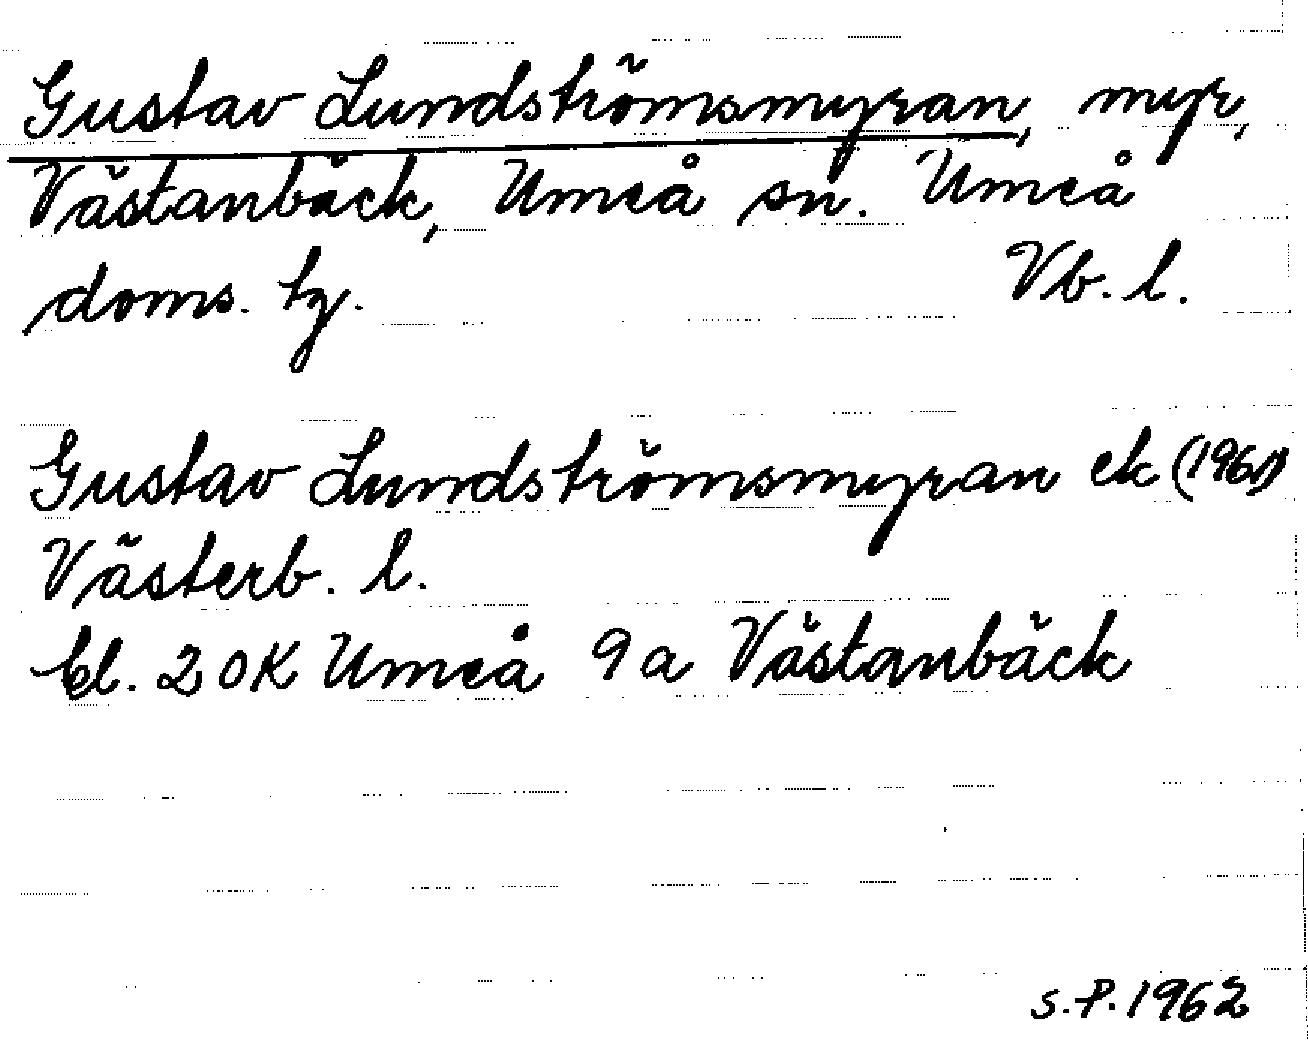 Gustav Lundströmsmyran, myr,
Västanbäck, Umeå sn. Umeå
doms. tg. Vb. l.
Gustav Lundströmsmyran ek (1961)
Västerb. l.
bl. 20K Umeå 9a Västanbäck
S.P. 1962